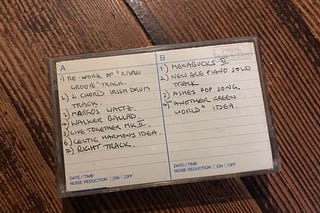 A
1) RE-WORK OF "RARE
GROOVE" TRACK.
2) 2 CHORD IRISH DRUM
TRACK.
3) MARCOS WALTZ.
4) WALKER BALLAD.
5) LIVE TOGETHER MK II.
6) CELTIC HARMONY IDEA.
7) RIGHT TRACK.
DATE/TIME
NOISE REDUCTION ☐ON ☐OFF
B
1) MEGABUCKS - II
2) NEW AGE PIANO SOLO
TRACK.
3) ASHES POP SONG.
4) "ANOTHER GREEN
WORLD" IDEA.
DATE/TIME
NOISE REDUCTION ☐ON ☐OFF